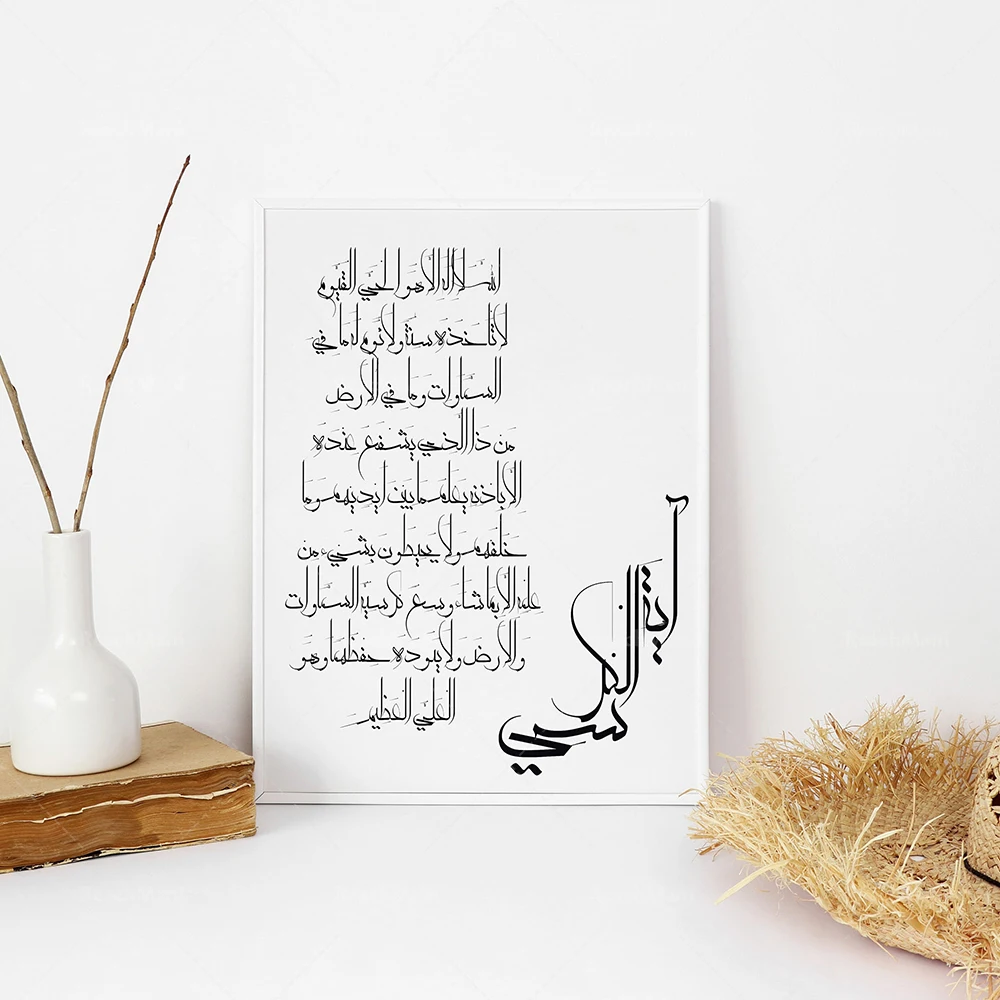 الله لا اله الا هو الحي القيوم
لا تاخذه سنة ولا نوم له ما في
السماوات وما في الارض
من ذا الذي يشفع عنده
الا باذنه يعلم ما بين ايديهم وما
خلفهم ولا يحيطون بشيء من
علمه الا بما شاء وسع كرسيه السماوات
والارض ولا يئوده حفظهما وهو
العلي العظيم
اية
الكر
سي